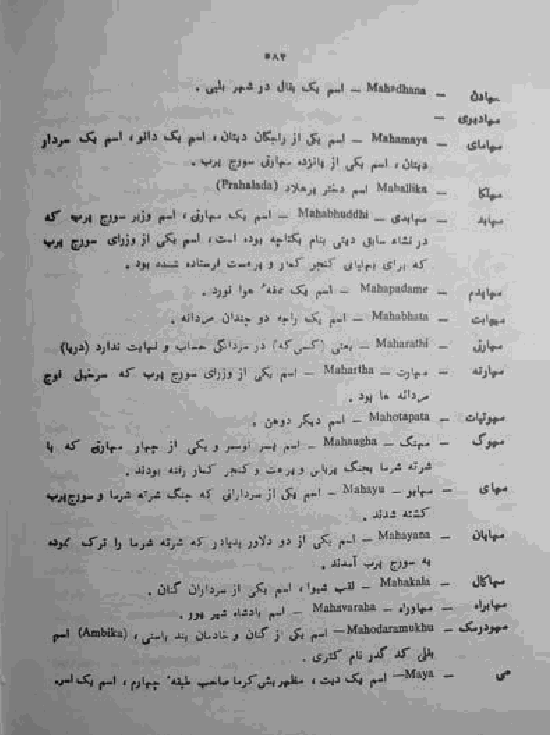 ۵۸۲
مهادن — Mahadhana — اسم یک بقال در شهر بلبی .
مهادیوی —
مهامای — Mahamaya — اسم یکی از راجگان دیتان ، اسم یک دانو ، اسم یک سردار
دیتان ، اسم یکی از پانزده مهارتی سورج پرب .
مهلکا — Mahallika اسم دختر پرهلاد (Prahalada)
مهابد — مهابدی — Mahabhuddhi — اسم یک مهارتی ، اسم وزیر سورج پرب که
در نشاء سابق دیتی بنام بوده است ، اسم یکی از وزرای سورج پرب
که برای کنجر کمار و پرهست فرستاده شده بود .
مهاپدم — Mahapadame — اسم یک هوا نورد .
مهابت — Mahabhata — اسم یک راجه دو چندان مردانه .
مهارتی — Maharathi — یعنی (کسی که) در مردانگی حساب و نهایت ندارد (دریا)
مهارته — مهارت — Mahartha — اسم یکی از وزرای سورج پرب که سرخیل فوج
مردانه ها بود .
مهوتپات — Mahotapata — اسم دیگر دوهن .
مهوگ — مهنگ — Mahaugha — اسم پسر و یکی از چهار مهارتی که با
شرته شرما بجنگ پربهاس و پرهست و کنجر کمار رفته بودند .
مهای — مهایو — Mahayu — اسم یکی از سردارانی که جنگ شرته شرما و سورج پرب
کشته شدند .
مهایان — Mahayana — اسم یکی از دو دلاور که شرته شرما را ترک نموده
به سورج پرب آمدند .
مهاکال — Mahakala — لقب شیوا ، اسم یکی از سرداران گنان .
مهابراه — مهاوراه — Mahavaraha — اسم پادشاه شهر
مهودرمک — Mahodaramukhu — اسم یکی از گنان و خادمان ، (Ambika) اسم
که نام
می — Maya — اسم یک دیت ، مظهر بش کرما صاحب طبقهٔ چهارم ، اسم یک اسر